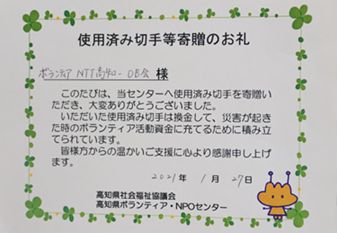 使用済み切手等寄贈のお礼
ボランティア NTT高知-OB会 様
このたびは、当センターへ使用済み切手を寄贈い
ただき、大変ありがとうございました。
いただいた使用済み切手は換金して、災害が起
きた時のボランティア活動資金に充てるために積み
立てられています。
皆様方からの温かいご支援に心より感謝申し上げ
ます。
2021年 1月 27日
高知県社会福祉協議会
高知県ボランティア・NPOセンター